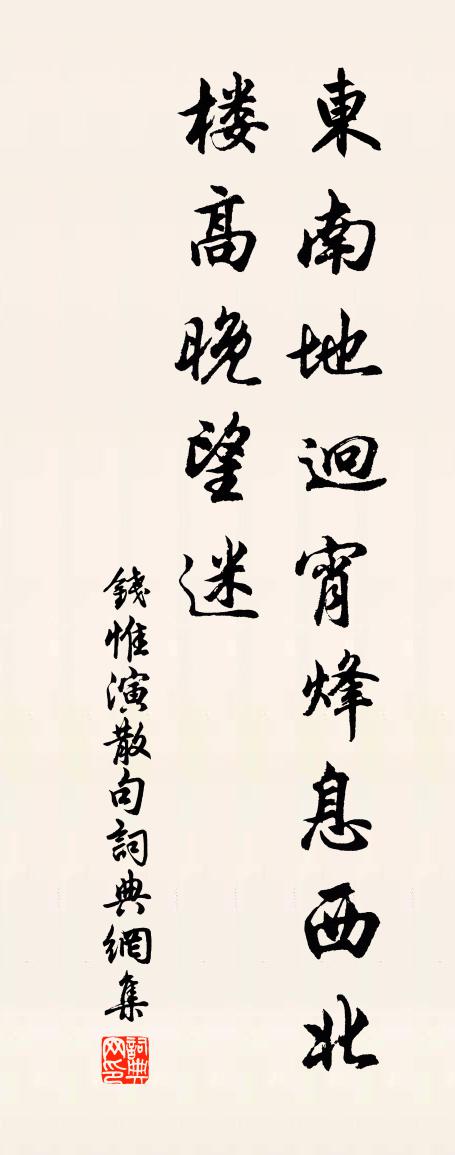 東南地迥宵烽息西北
楼高晚望迷
錢惟演散句詞典網集
詞典网印